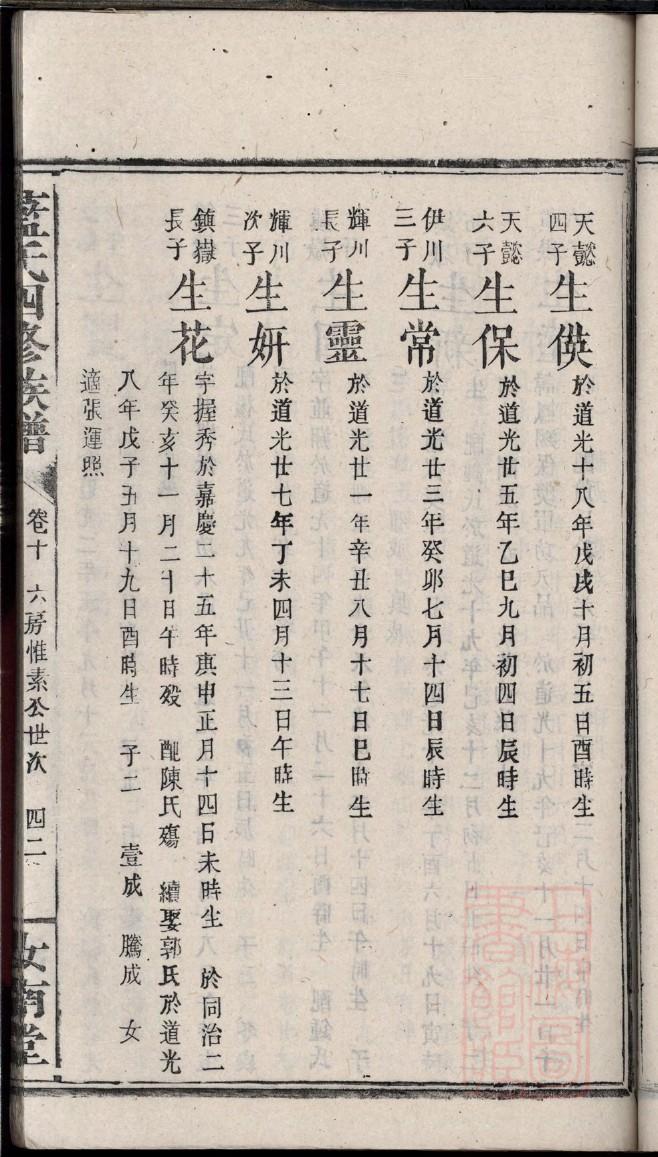 天懿四子 生偀 於道光十八年戊戌十月初五日酉時生
天懿六子 生保 於道光廿五年乙巳九月初四日辰時生
伊川三子 生常 於道光廿三年癸卯七月十四日辰時生
輝川長子 生靈 於道光廿一年辛丑八月十七日巳時生
輝川次子 生妍 於道光廿七年丁未四月十三日午時生
鎮嶽長子 生花 字握秀於嘉慶二十五年庚申正月十四日未時生 於同治二
年癸亥十一月二十日午時歿 配陳氏殤 續娶郭氏於道光
八年戊子五月十九日酉時生 子二 壹成 騰成 女
適張運照
藍氏四修族譜 卷十 六房惟素公世次 四二 汝南堂